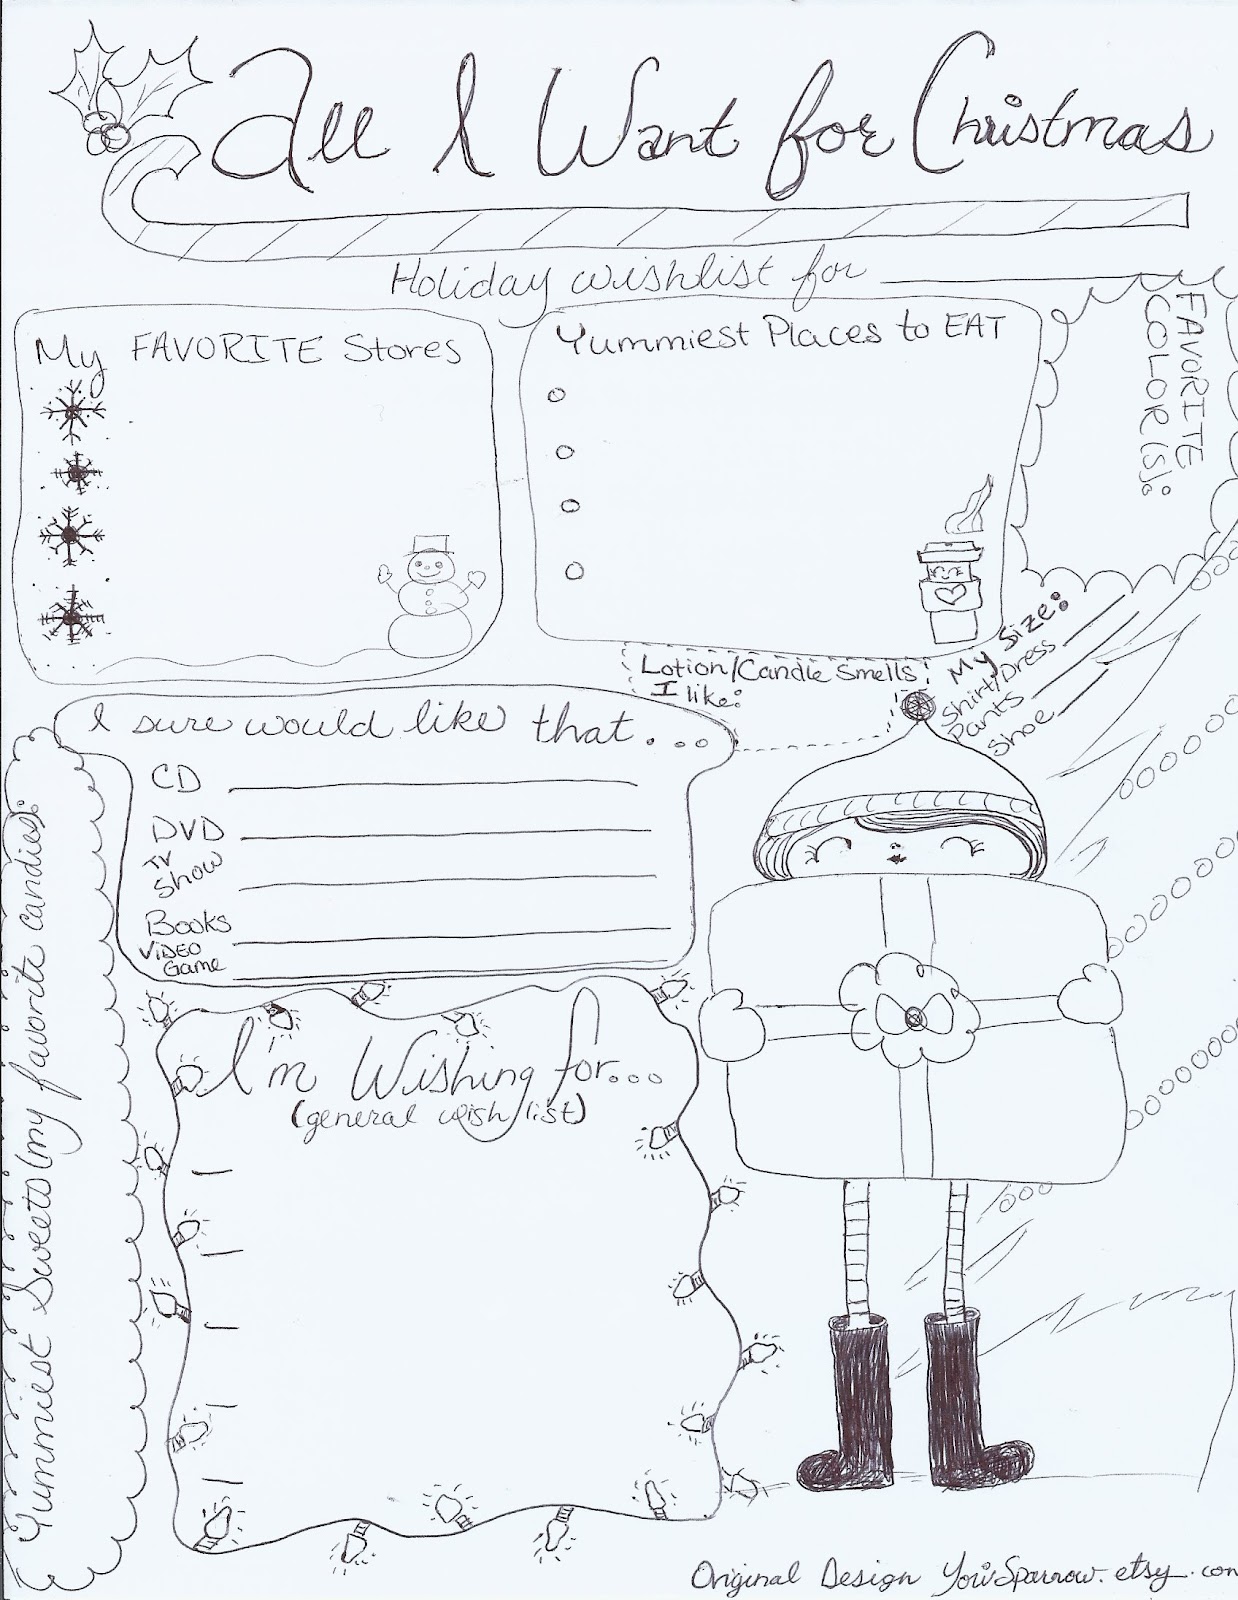 All I Want for Christmas
Holiday wishlist for
My FAVORITE Stores
Yummiest Places to EAT
FAVORITE
COLOR(S):
My Size:
Shirt/Dress
Pants
Shoe
Lotion/Candle Smells
I like:
I sure would like that...
CD
DVD
TV
Show
Books
ViDEO
Game
Yummiest Sweets (my favorite candies):
I'm Wishing for...
(general wish list)
Original Design YoriSparrow.etsy.com